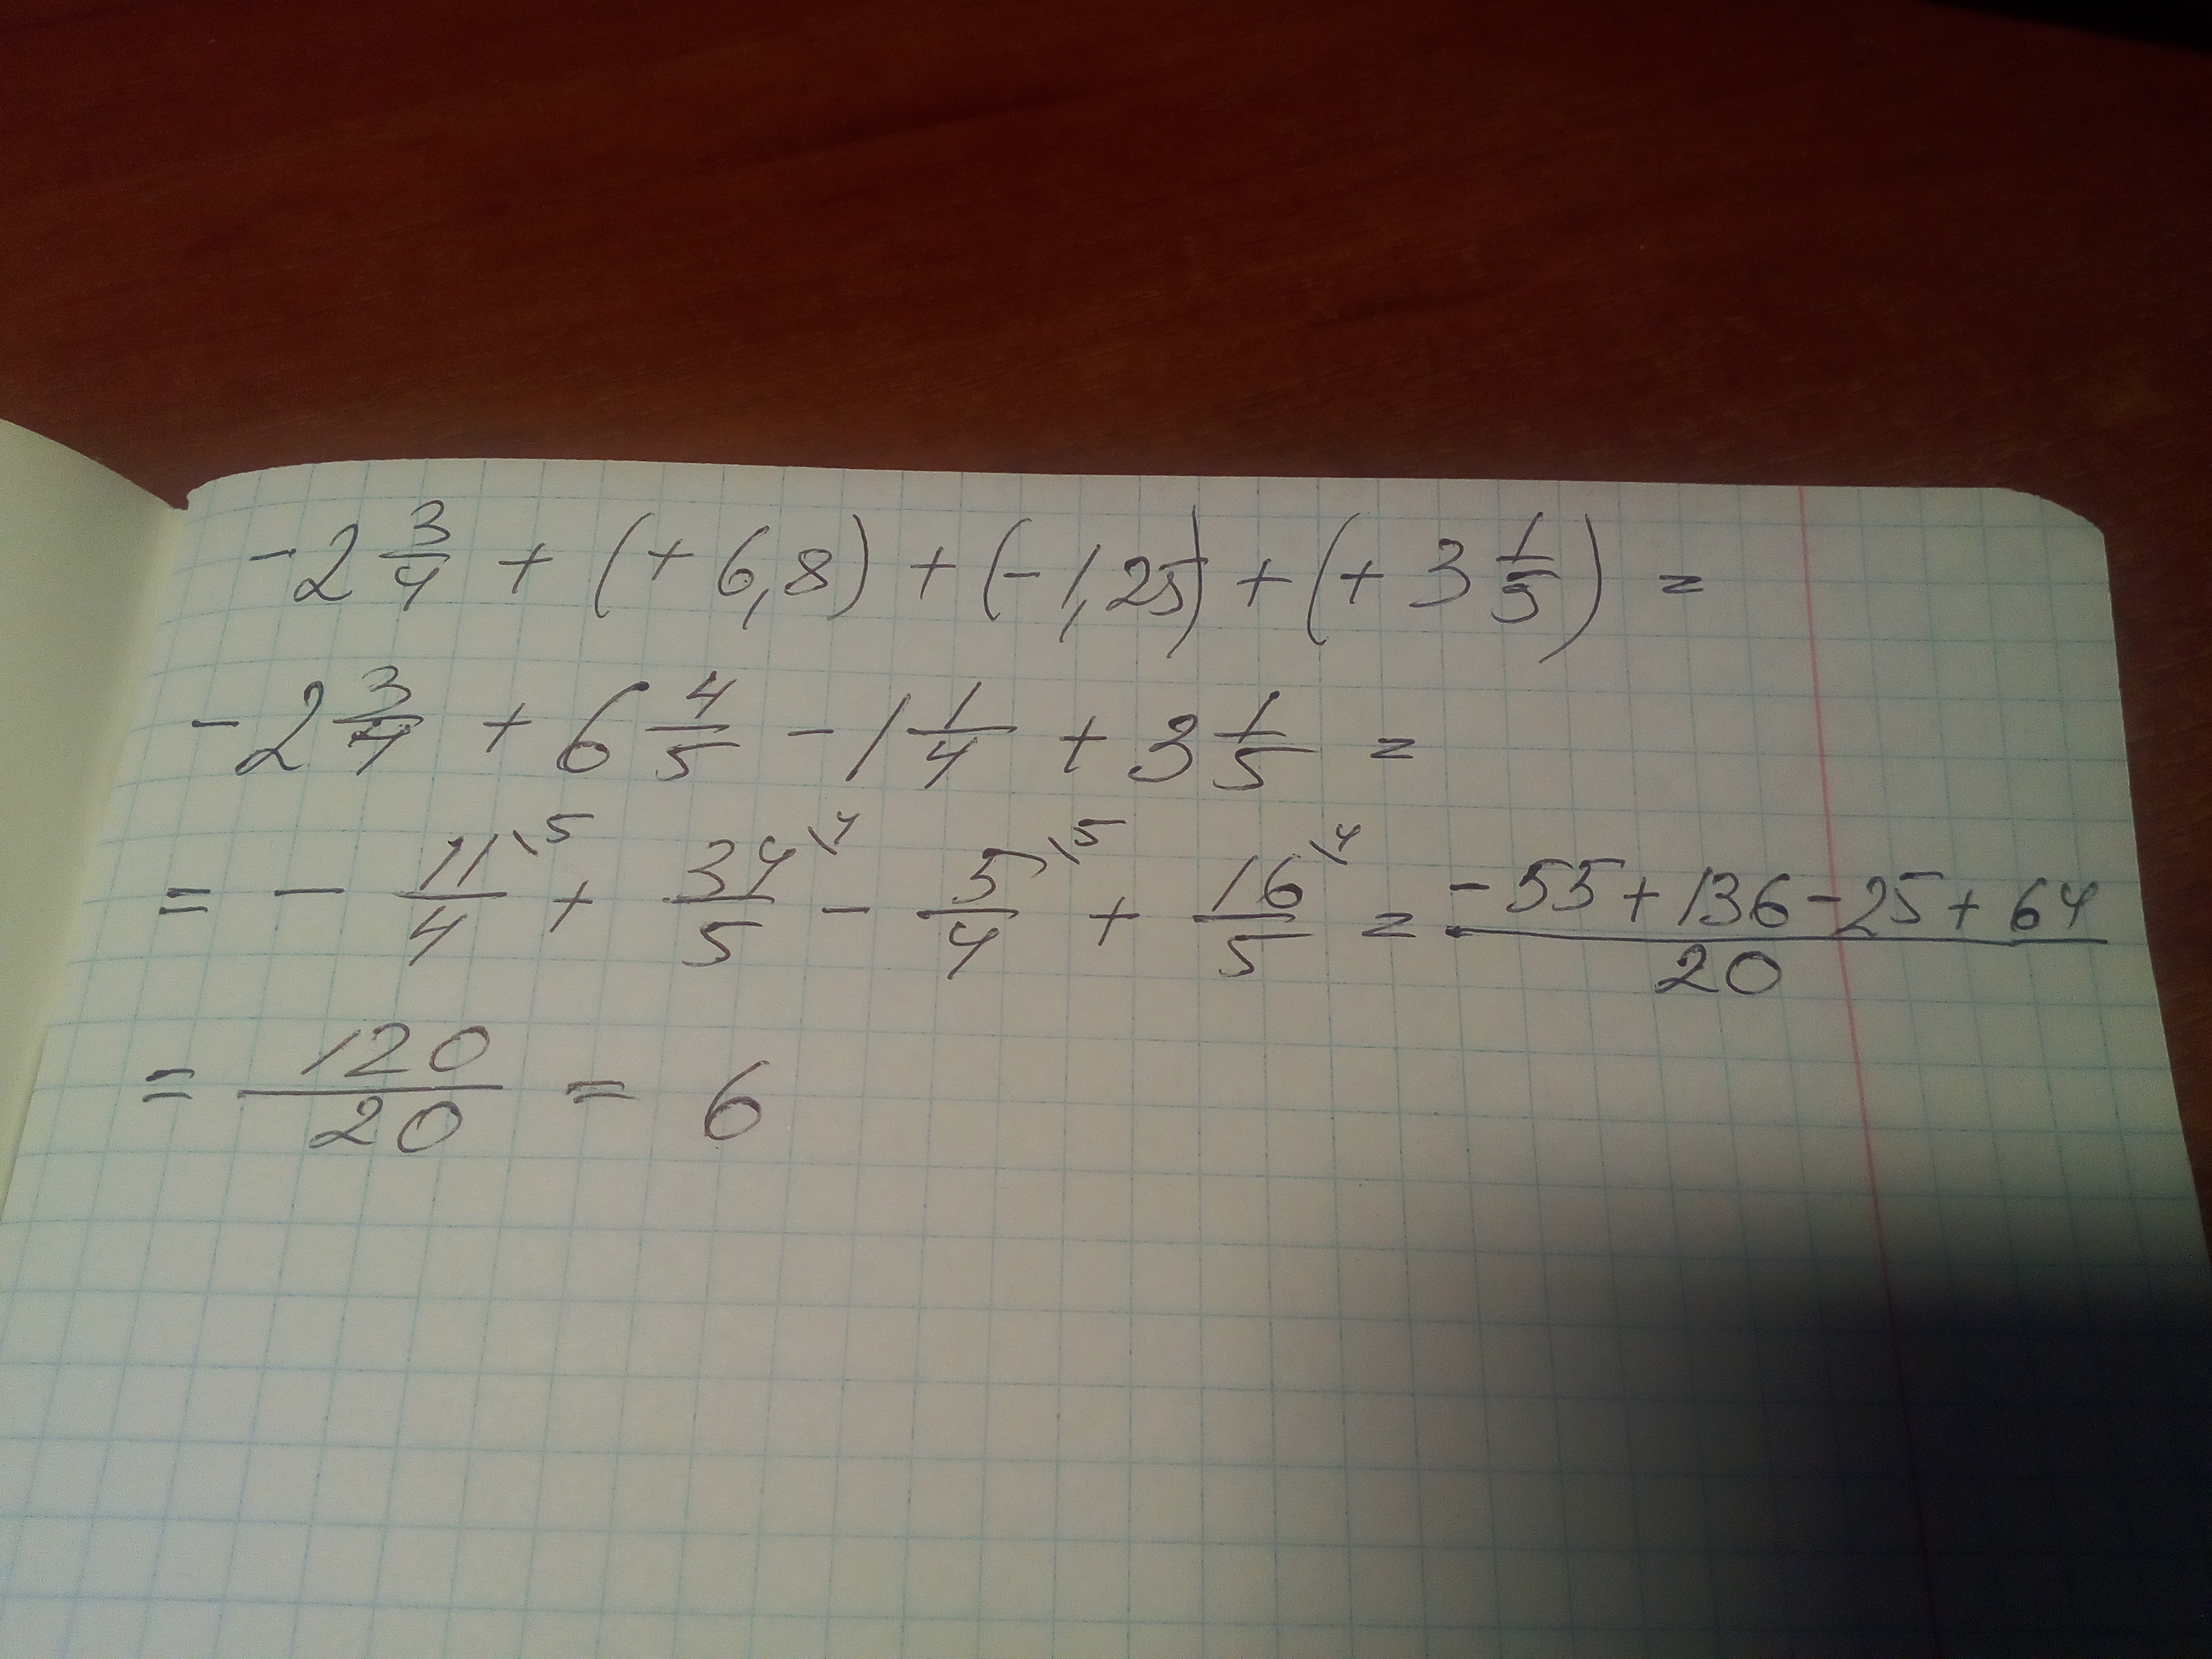 -2 3/4 + (+ 6,8) + (-1,25) + (+ 3 1/5) =
-2 3/4 + 6 4/5 - 1 1/4 + 3 1/5 =
= - 11\5/4 + 34\4/5 - 5\5/4 + 16\4/5 = -55 + 136 - 25 + 64/20
= 120/20 = 6